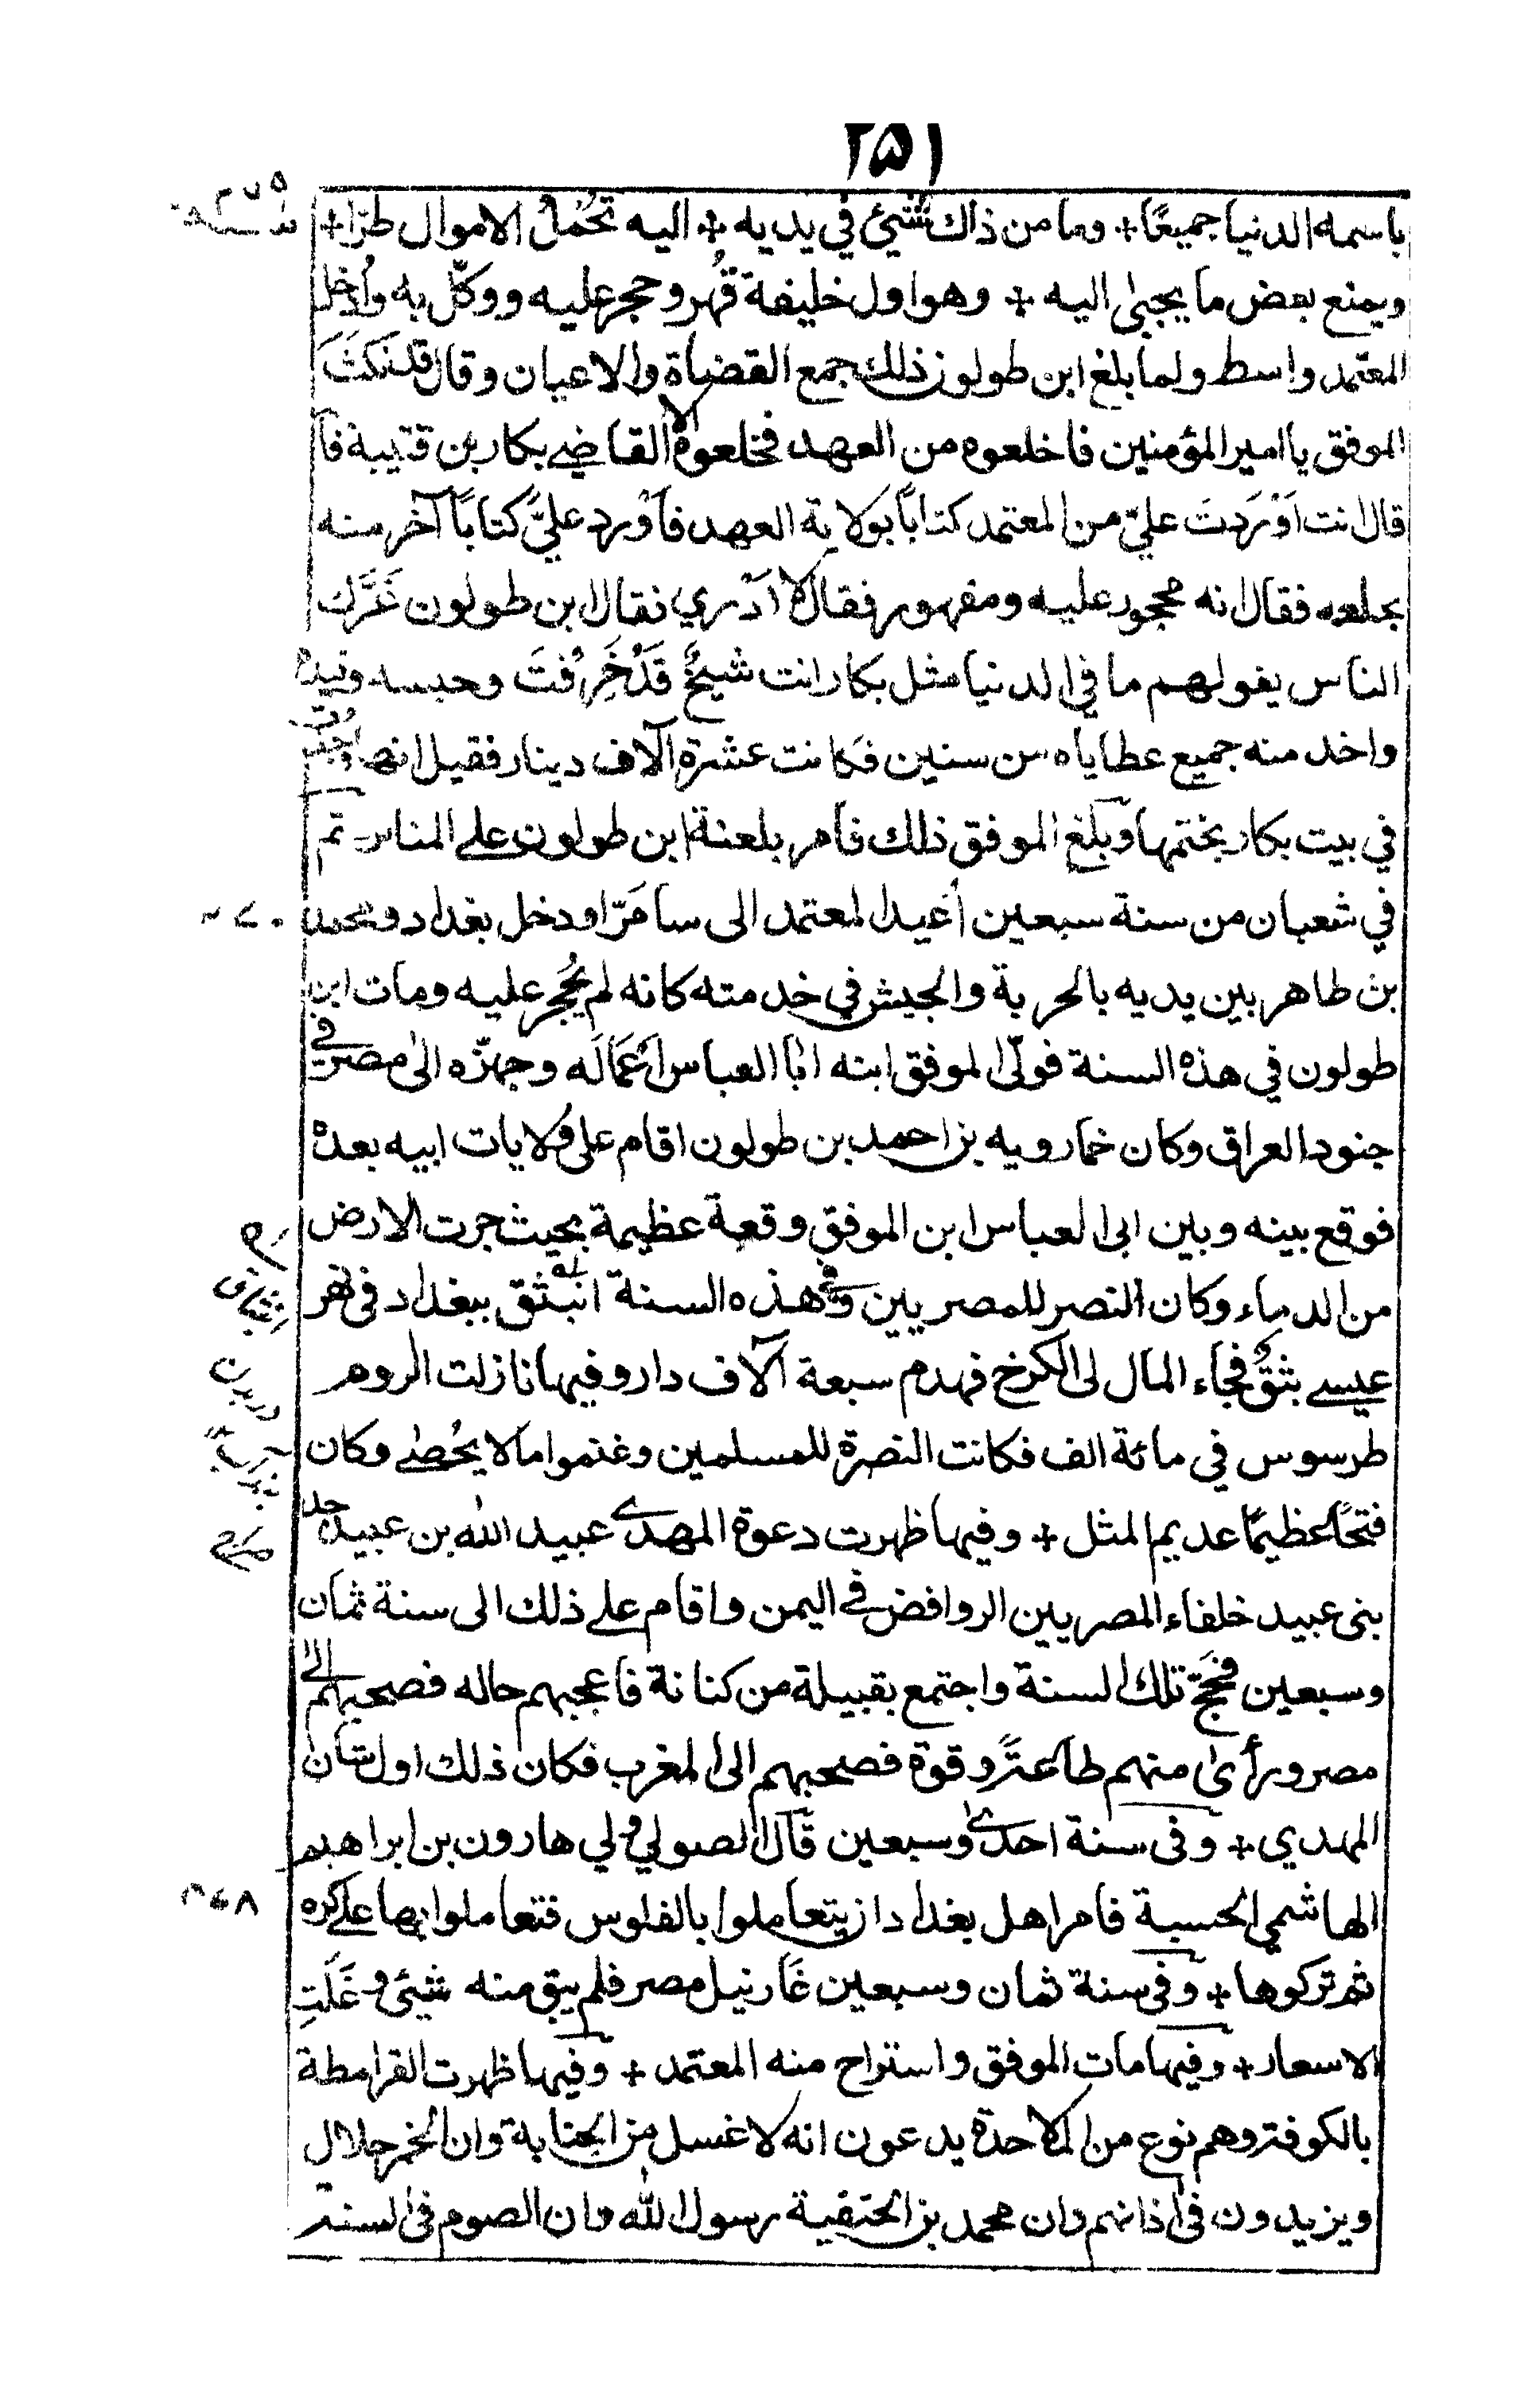 ٢٥١
باسمه الدنيا جميعًا + وما من ذاك شيئ في يديه + اليه تُحْمَلُ الاموال طرّا +
ويمنع بعض ما يجبىٰ اليه + وهو اول خليفة قُهر وحجر عليه ووكّل به وأُدخل
المعتمد واسط ولما بلغ ابن طولون ذلك جمع القضاة والاعيان وقال قد نكثَ
الموفق يا امير المؤمنين فاخلعوه من العهد فخلعوه الا القاضي بكار بن قتيبة فا
قال انت اَوْرَدتَ عليّ من المعتمد كتابًا بولاية العهد فاَوْرد عليّ كتابًا آخر منه
بخلعه فقال انه محجور عليه ومقهور فقال لا ادري فقال ابن طولون غَرَّك
الناس بقولهم ما في الدنيا مثل بكار انت شيخٌ قَدْ خَرِفْتَ وحبسه وقيده
واخذ منه جميع عطاياه من سنين فكانت عشرة آلاف دينار فقيل انها وُجدت
في بيت بكار بختمها وبلغ الموفق ذلك فامر بلعنة ابن طولون على المنابر ثم
في شعبان من سنة سبعين أُعيد المعتمد الى سامَرّا ودخل بغداد ومحمد
بن طاهر بين يديه بالحربة والجيش في خدمته كانه لم يُحْجر عليه ومات ابن
طولون في هذه السنة فولّى الموفق ابنه ابا العباس اَعمَالَه وجهّزه الى مصر في
جنود العراق وكان خمارويه بن احمد بن طولون اقام على ولايات ابيه بعده
فوقع بينه وبين ابي العباس ابن الموفق وقعة عظيمة بحيث جرت الارض
من الدماء وكان النصر للمصريين وفي هذه السنة انبثق ببغداد في نهر
عيسى بثقٌ فجاء المال الى الكرخ فهدم سبعة آلاف دار وفيها نازلت الروم
طرسوس في مائة الف فكانت النصرة للمسلمين وغنموا ما لا يُحْصٰى وكان
فتحًا عظيمًا عديم المثل + وفيها ظهرت دعوة المهدي عبيد الله بن عبيد جد
بنى عبيد خلفاء المصريين الروافض في اليمن واقام على ذلك الى سنة ثمان
وسبعين فحَجّ تلك السنة واجتمع بقبيلة من كنانة فاعجبهم حاله فصحبهم الى
مصر ورأى منهم طاعةً وقوة فصحبهم الى المغرب فكان ذلك اول شان
المهدي + وفى سنة احدى وسبعين قال الصولي ولي هارون بن ابراهيم
الهاشمي الحسبة فامر اهل بغداد ان يتعاملوا بالفلوس فتعاملوا بها على كره
ثم تركوها + وفى سنة ثمان وسبعين غَار نيل مصر فلم يبق منه شيئ وغَلَتِ
الاسعار + وفيها مات الموفق واستراح منه المعتمد + وفيها ظهرت القرامطة
بالكوفة وهم نوع من الملاحدة يدعون انه لا غسل من الجنابة وان الخمر حلال
ويزيدون فى اذانهم وان محمد بن الحنفية رسول الله وان الصوم فى السنة